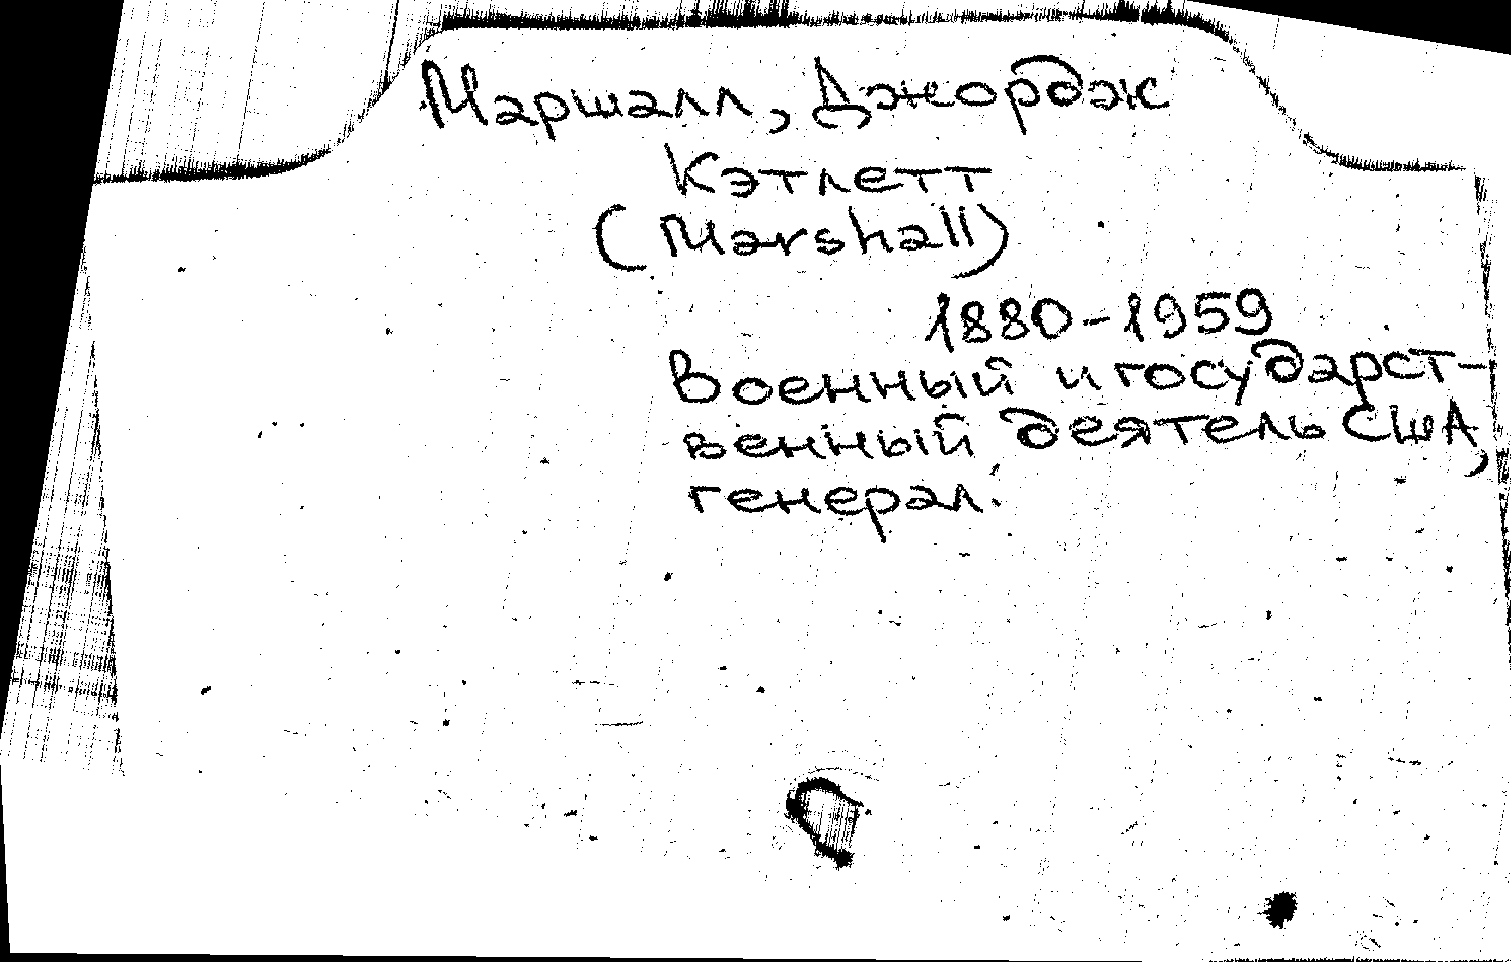 Маршалл, Джордж
Кэтлетт
(Marshall)
1880-1959
Военный и государст-
венный деятель США,
генерал.